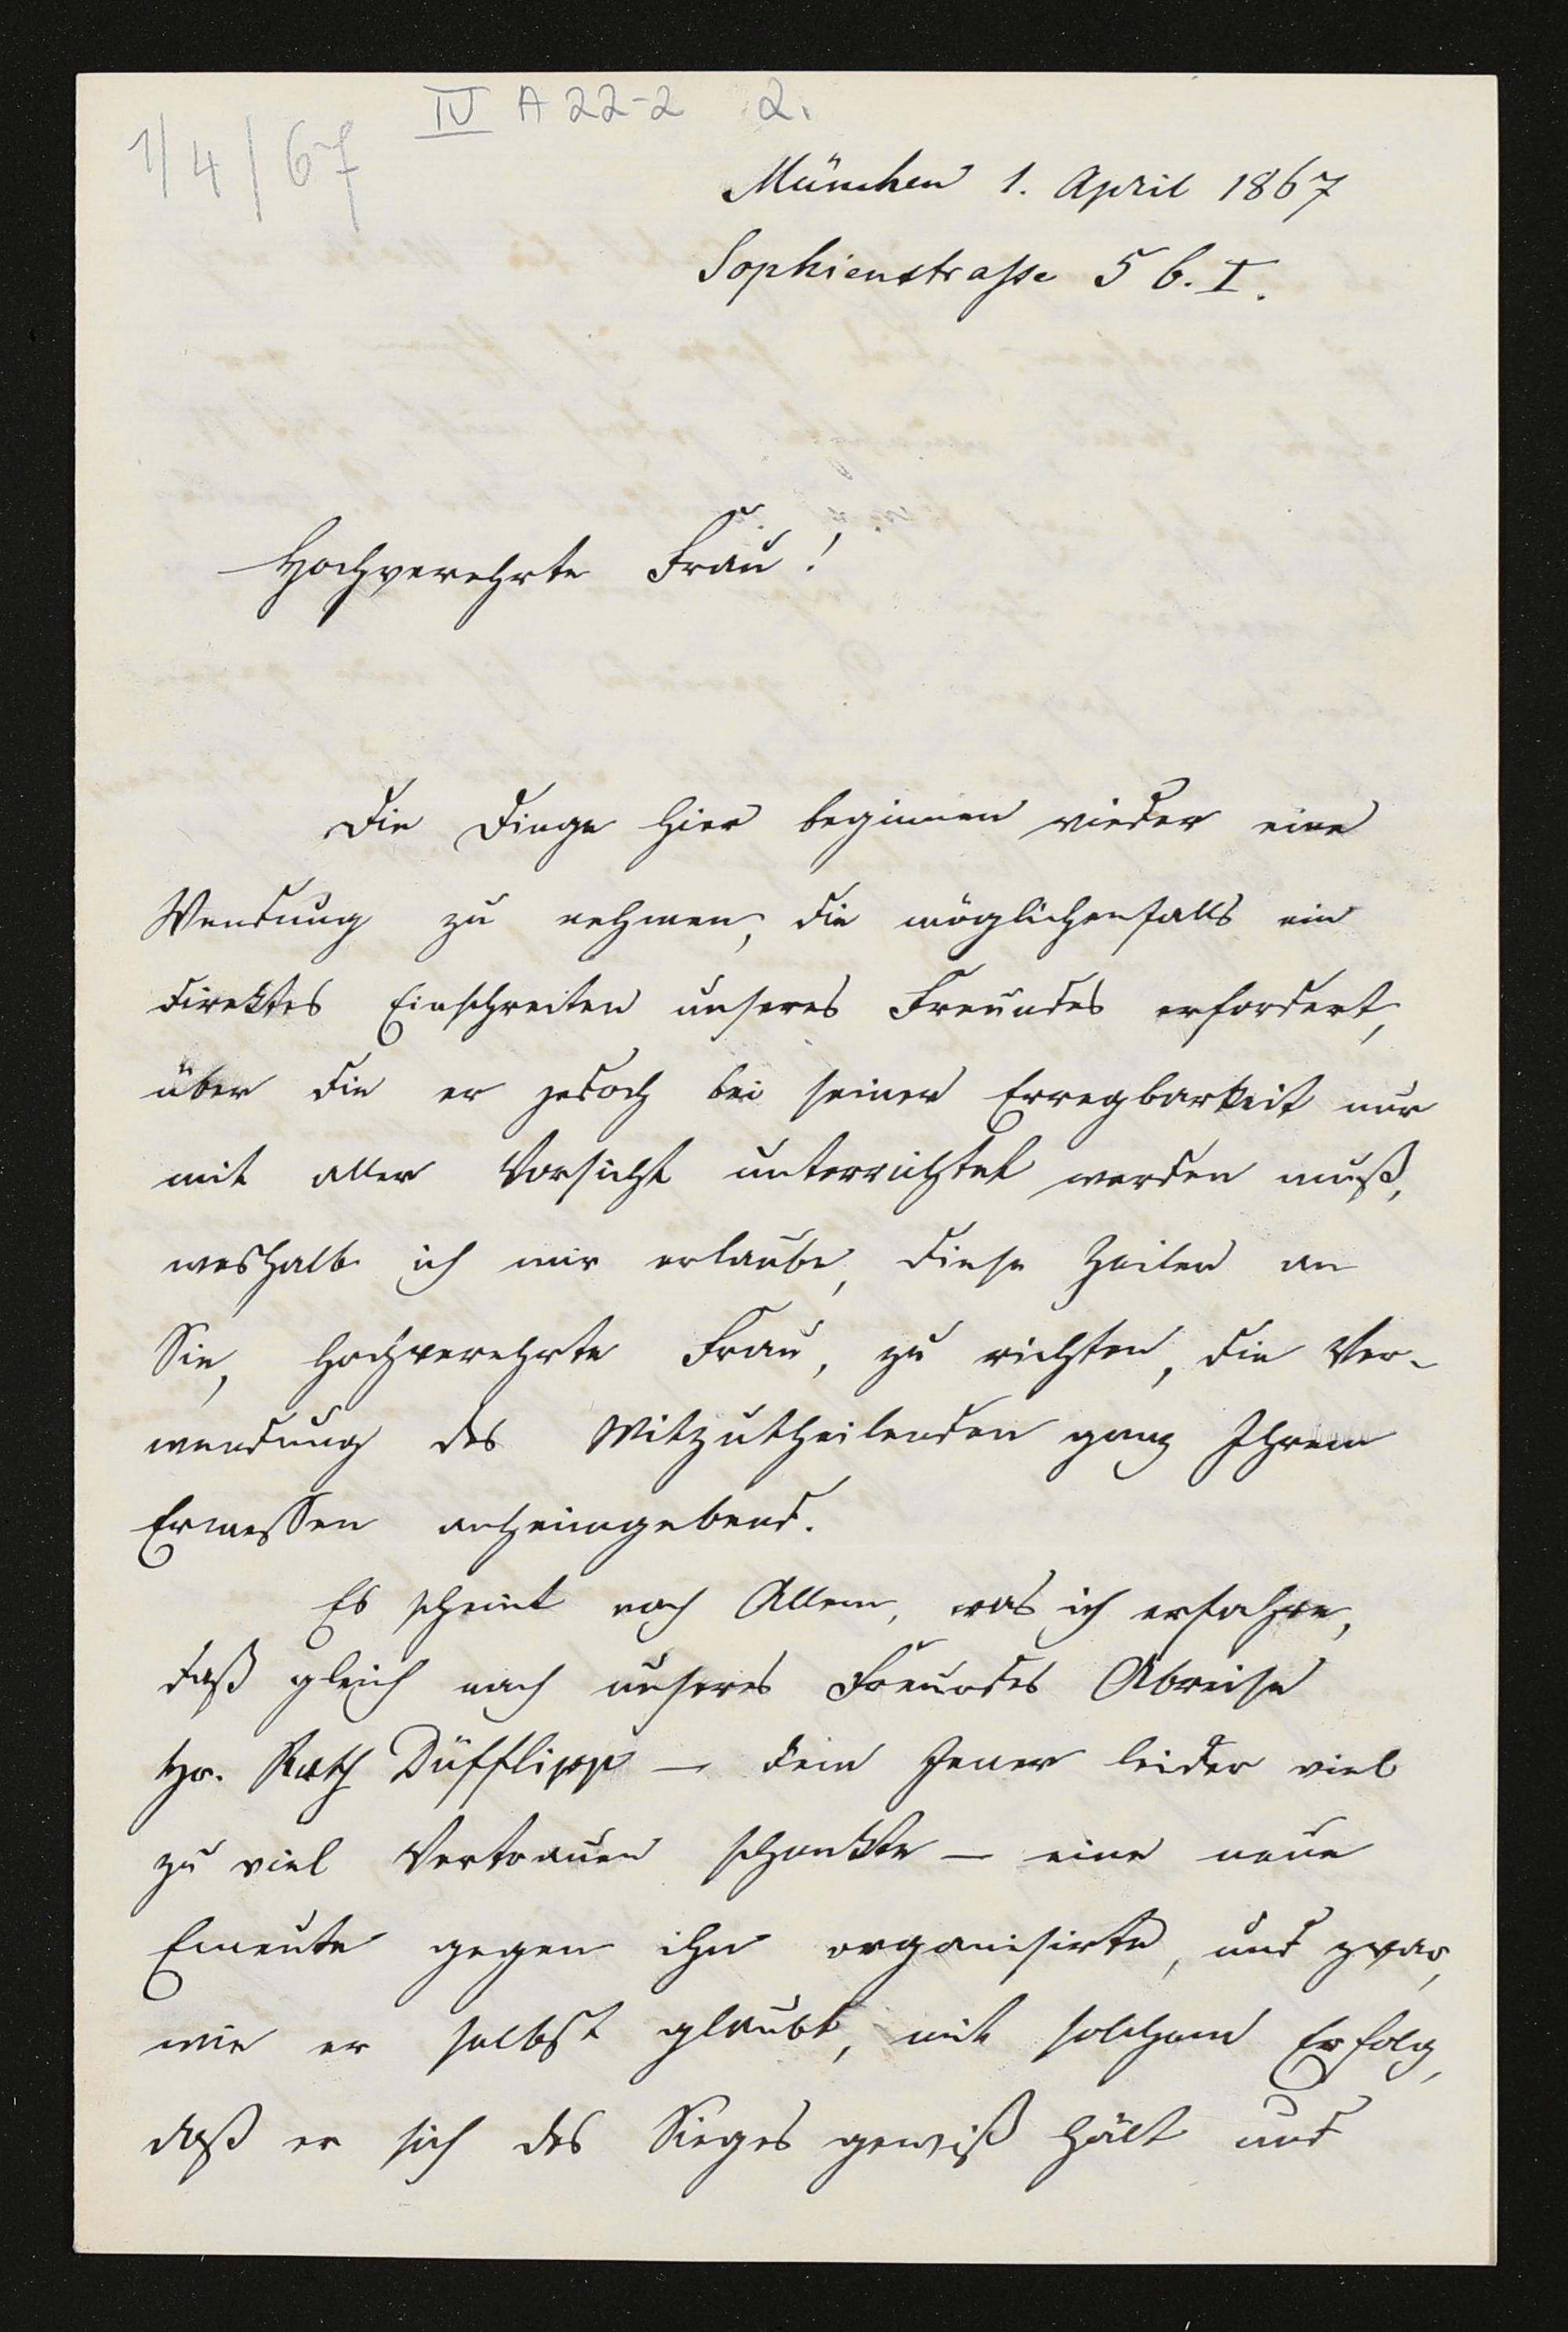 IV A 22-2 2.
1/4/67
München 1. April 1867
Sophienstrasse 5 b. I.
Hochverehrte Frau!
Die Dinge hier beginnen wieder eine
Wendung zu nehmen, die möglichenfalls ein
direktes Einschreiten unseres Freundes erfordert,
über die er jedoch bei seiner Erregbarkeit nur
mit aller Vorsicht unterrichtet werden muß,
weshalb ich mir erlaube, diese Zeilen an
Sie, hochverehrte Frau, zu richten, die Ver-
wendung des Mitzutheilenden ganz Ihrem
Ermessen anheimgebend.
Es scheint nach Allem, was ich erfahre,
daß gleich nach unseres Freundes Abreise
Hr. Rath Düfflipp — dem Jener leider viel
zu viel Vertrauen schenkte — eine neue
Emeute gegen ihn organisirte, und zwar,
wie er selbst glaubt, mit solchem Erfolg,
daß er sich des Sieges gewiß hält und